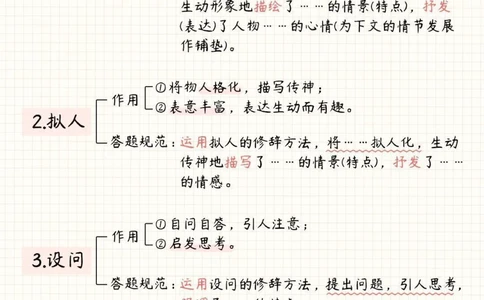 生动形象地描绘了……的情景(特点)，抒发
(表达)了人物……的心情(为下文的情节发展
作铺垫)。
2.拟人
作用
①将物人格化，描写传神；
②表意丰富，表达生动而有趣。
答题规范：运用拟人的修辞方法，将……拟人化，生动
传神地描写了……的情景(特点)，抒发了……
的情感。
3.设问
作用
①自问自答，引人注意；
②启发思考。
答题规范：运用设问的修辞方法，提出问题，引人思考，